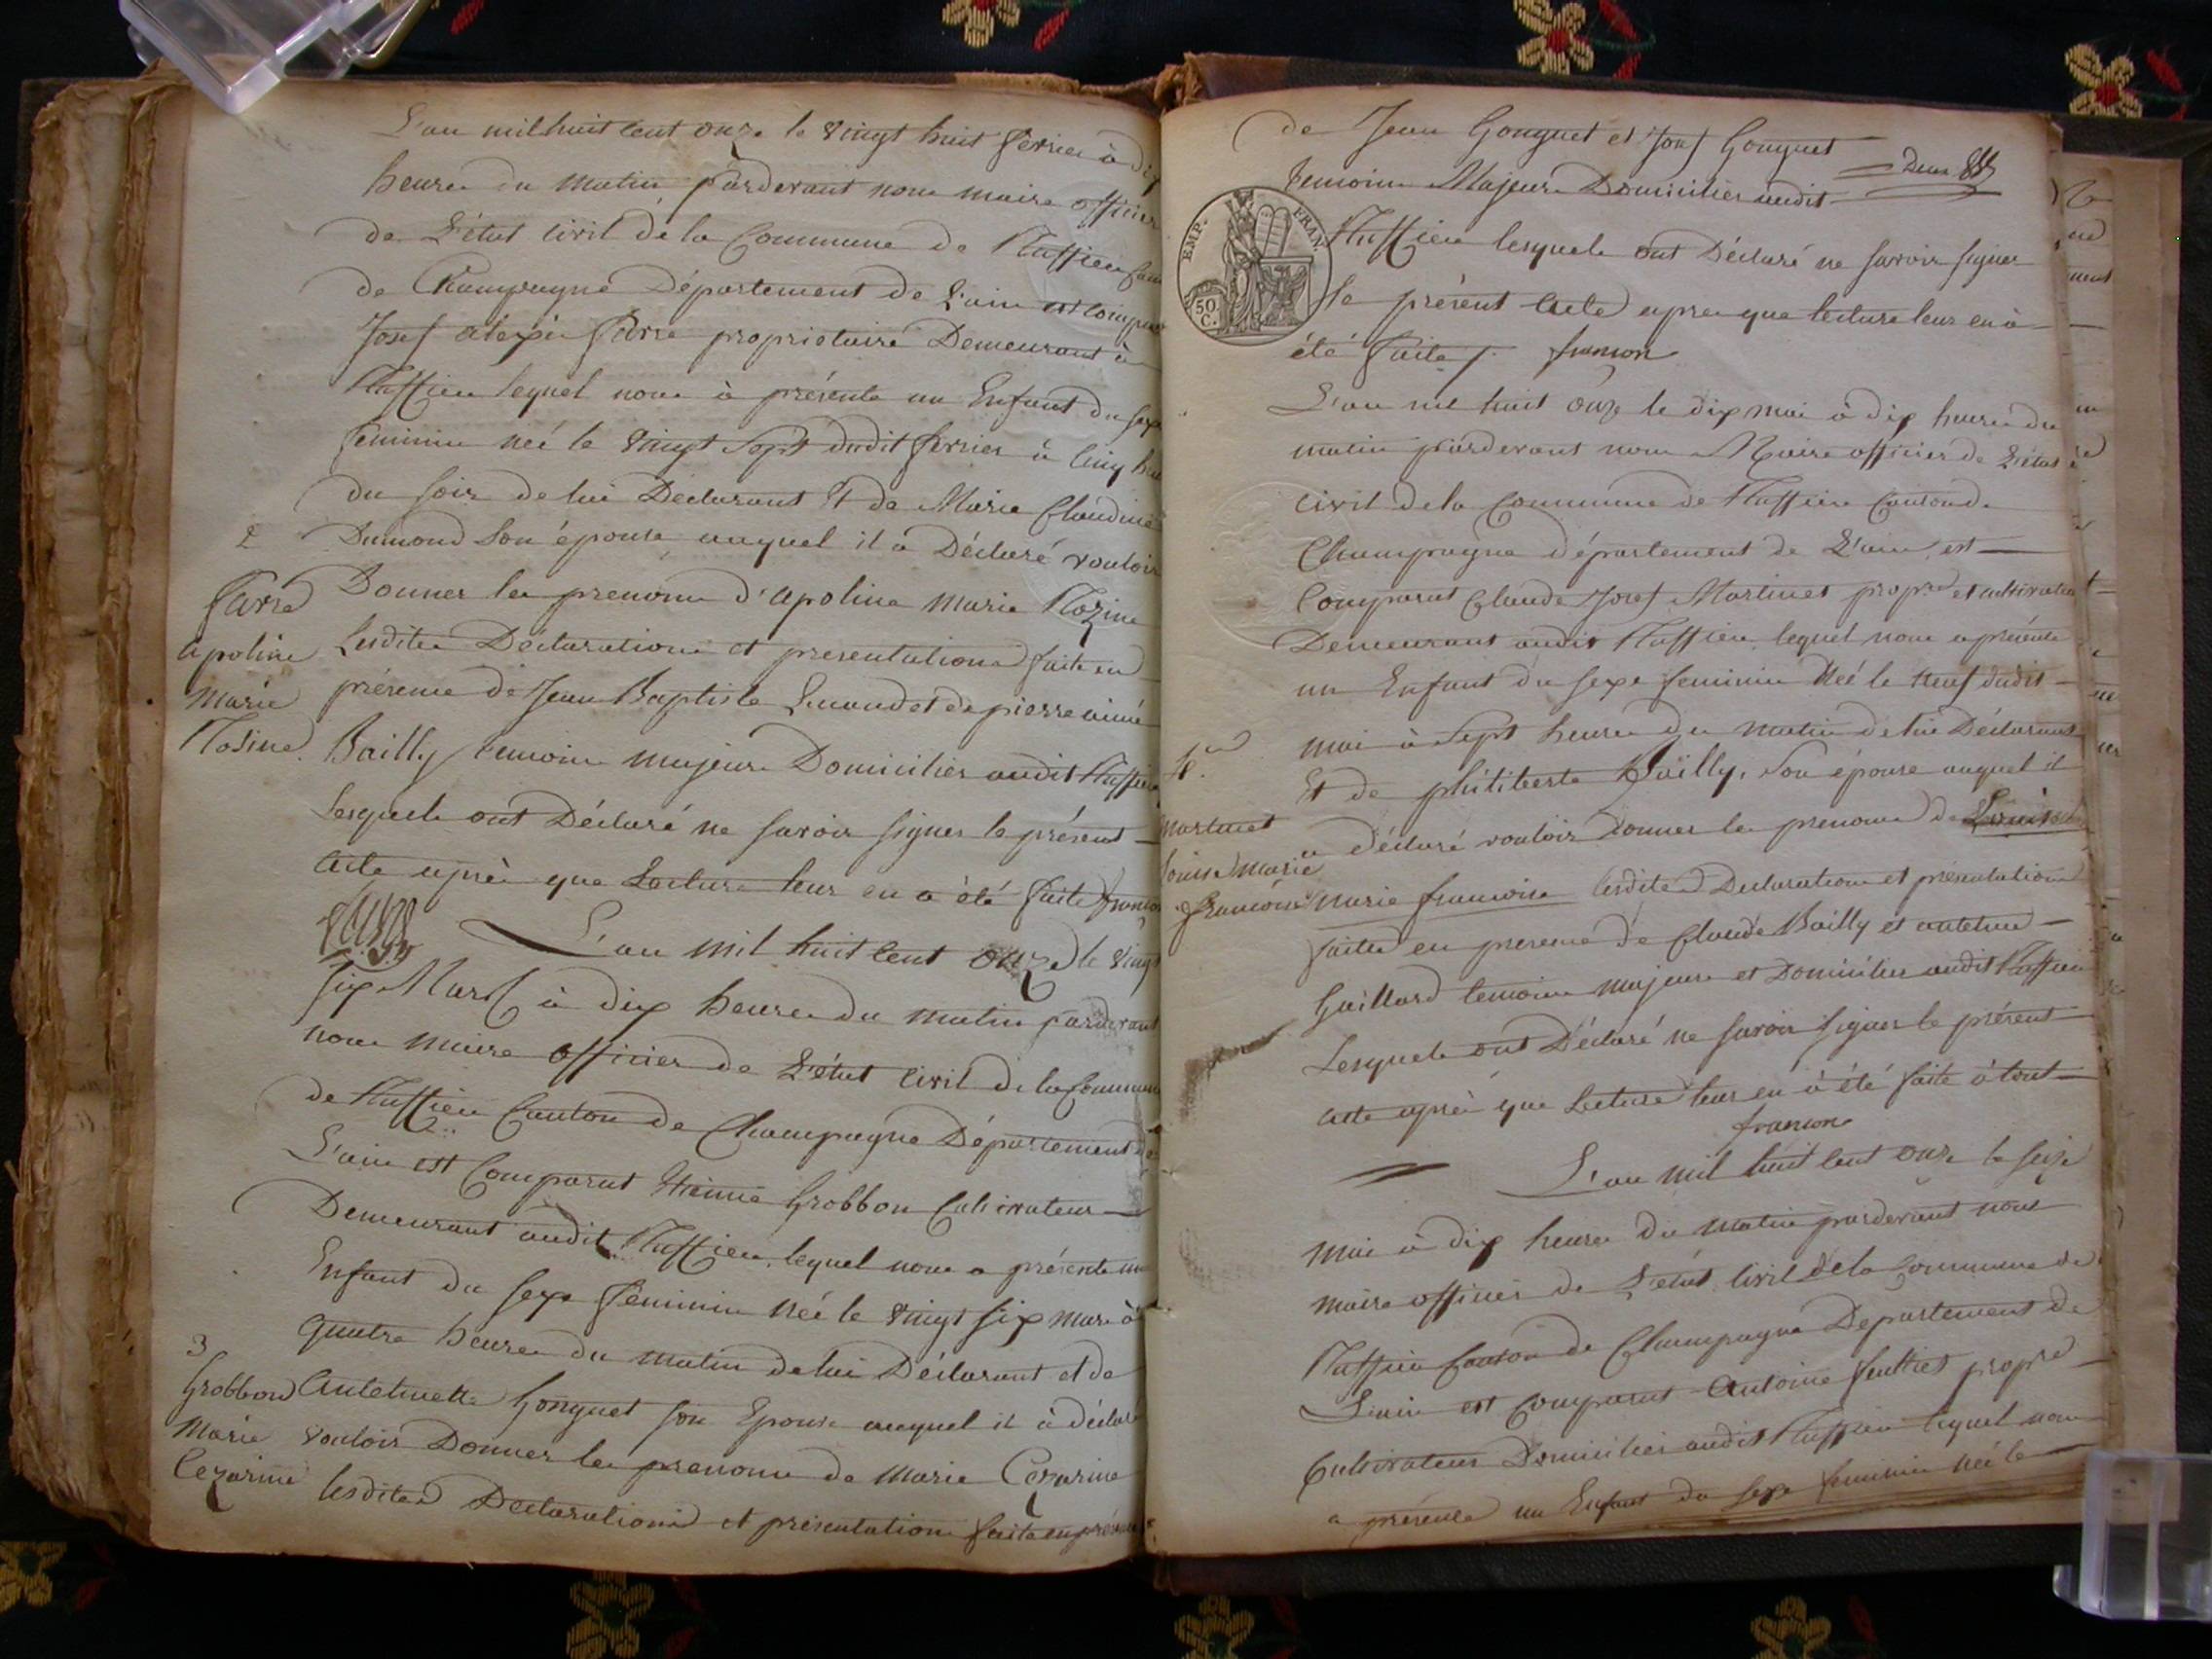 L'an mil huit cent onze le vingt huit fevrier à dix
heures du matin pardevant nous maire officier
de L'état civil de la Commune de Ruffieu
de Champagne Département de L'ain est comparu
Josef alexis favre propriétaire Demeurant à
Ruffieu lequel nous à présenté un Enfant du sexe
feminin née le vingt sept dudit fevrier à cinq
du soir de lui Déclarant Et de Marie Claudine
2
Dumond Son épouse auquel il a Déclaré vouloir
favre
Donner les prenoms d'apoline Marie Rozine
apoline
Lesdites Déclarations et presentations faite en
Marie
présence de Jean Baptiste et de pierre aimé
Rosine
Bailly temoins majeurs Domiciliés audit Ruffieu
Lesquels ont Déclaré ne savoir signer le présent
acte après que Lecture leur en a été faite francon
L'an mil huit cent onze le vingt
six Mars à dix heures du matin pardevant
nous maire officier de L'état civil de la Commune
de Ruffieu Canton de Champagne Département de
L'ain est Comparut Etienne Grobbon Cultivateur
Demeurant audit Ruffieu, lequel nous a présenté un
Enfant du sexe féminin née le vingt six mars à
quatre heures du matin de lui Déclarant et de
3
Grobbon
Antelmette Gonguet son Epouse auquel il à déclaré
Marie
vouloir Donner les prenoms de Marie Cezarine
Cezarine
lesdites Déclarations et présentations faite en présence
de Jean Gonguet et Josef Gonguet
temoins Majeurs Domiciliés audit
EMP. FRAN.
50 C.
Ruffieu lesquels ont Déclaré ne savoir signer
le présent acte apres que lecture leur en à
été faite francon
L'an mil huit onze le dix mai à dix heures du
matin pardevant nous Maire officier de L'état
civil de la Commune de Ruffieu Canton de
Champagne département de L'ain, est
Comparut Claude Josef Martinet propre et cultivateur
Demeurant audit Ruffieu, lequel nous a présenté
un Enfant du sexe feminin Née le neuf dudit
mai à Sept heures du matin de lui Déclarant
4
Et de philiberte Bailly, Son épouse auquel il
Martinet
a déclaré vouloir Donner les prenoms de Louise
Louise Marie
francoise
marie francoise lesdites Declarations et présentations
faites en presence de Claude Bailly et antelme
Gaillard temoins majeurs et Domiciliés audit Ruffieu
Lesquels ont Déclaré ne savoir signer le présent
acte après que Lecture leur en à été faite
francon
L'an mil huit cent onze le seize
mai à dix heures du matin pardevant nous
maire officier de L'état civil de la Commune de
Ruffieu Canton de Champagne Departement de
L'ain est Comparut Antoine propre
Cultivateur Domicilié audit Ruffieu lequel nous
a présenté un Enfant du sexe feminin née le